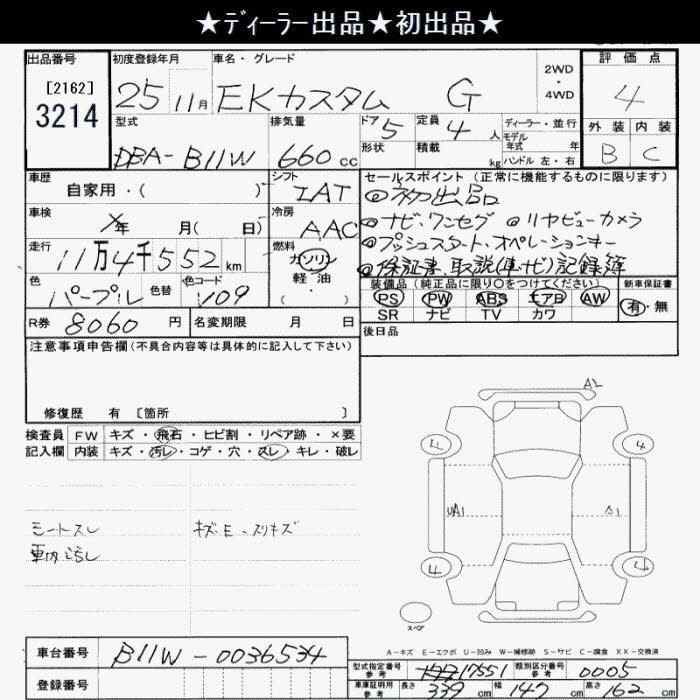 ★ディーラー出品★初出品★
出品番号 初度登録年月 車名・グレード 評価点
[2162]
3214
25 11月 EKカスタム G 2WD・4WD 4
型式 排気量 ドア 5 定員 4人 ディーラー・並行
モデル年式 年
外装 内装
DBA-B11W 660cc 形状 積載 kg ハンドル 左・右 B C
車歴 シフト セールスポイント (正常に機能するものに限ります)
自家用・( ) IAT ◎初出品
車検 冷房 ◎ナビ、ワンセグ ◎リヤビューカメラ
年 月( 日) AAC
◎プッシュスタート、オペレーションキー
走行 燃料
11万4千552km ガソリン ◎保証書、取説(車ナビ)記録簿
色 色替 色コード 軽油 装備品 (純正品に限り〇をつけてください) 新車保証書
パープル Y09 ( ・ ) PS PW ABS エアB AW 有・無
SR ナビ TV カワ
R券 8060円 名変期限 月 日 後日品
注意事項申告欄(不具合内容等は具体的に記入して下さい)
修復歴 有 [箇所 ]
A2
検査員 FW キズ・飛石・ヒビ割・リペア跡・×要
記入欄 内装 キズ・汚レ・コゲ・穴・スレ・キレ・破レ
4 4
UA1 A1
シートスレ キズ、E、スリキズ
車内汚レ
4 4
スペア
A-キズ E-エクボ U-凹み W-補修跡 S-サビ C-腐食 XX-交換済
車台番号 B11W-0036534
型式指定番号 参考 17551 類別区分番号 参考 0005
登録番号 車庫証明用 参考 長さ 339cm 幅 147cm 高さ 162cm